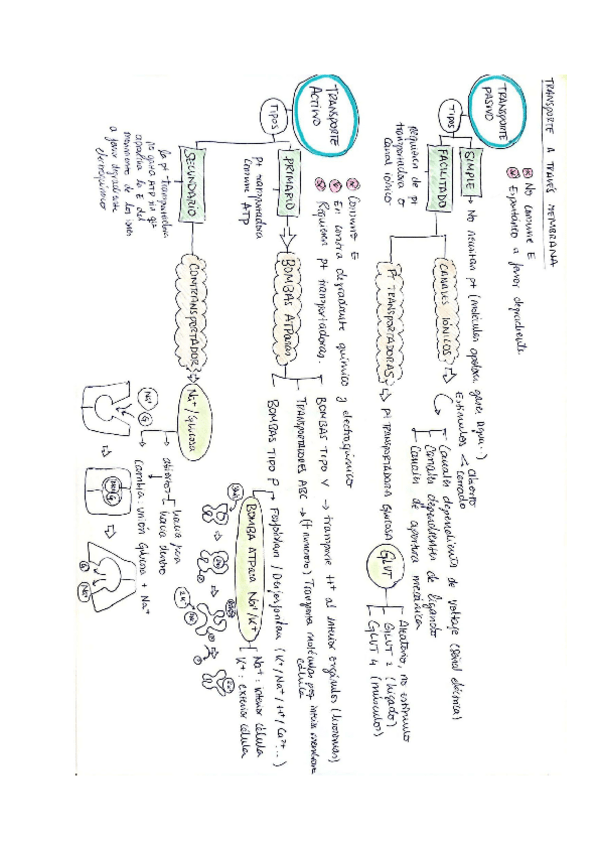 TRANSPORTE A TRAVÉS MEMBRANA
TRANSPORTE
PASIVO
No consume E
Espontáneo a favor de gradiente
TIPOS
SIMPLE → No necesitan pt (moléculas apolares, gases, agua...)
FACILITADO
Requieren de pt
transportadora o
canal iónico
CANALES IÓNICOS
Estímulos
abierto
cerrado
Canales dependientes de voltaje (señal eléctrica)
Canales dependientes de ligando
Canales de apertura mecánica
PT TRANSPORTADORAS
PT TRANSPORTADORA GLUCOSA
GLUT
Aleatorio, no estímulo
GLUT 2 (hígado)
GLUT 4 (músculos)
TRANSPORTE
ACTIVO
Consume E
En contra de gradiente químico y electroquímico
Requieren pt transportadoras.
TIPOS
PRIMARIO
pt transportadora
consume ATP
BOMBAS ATPasas
BOMBAS TIPO V → transporte H+ al interior orgánulos (lisosomas)
TRANSPORTADORES ABC → (+ numeroso) Transporta moléculas peq. membrana
célula
BOMBAS TIPO P → Fosforilan / Desfosforilan (K+/Na+/H+/Ca2+...)
BOMBA ATPasa Na+/K+
Na+: interior célula
K+: exterior célula
SECUNDARIO
la pt transportadora
no gasta ATP sino que
aprovecha la E del
movimiento de los iones
a favor de gradiente
electroquímico
COTRANSPORTADORES
Na+/Glucosa
abierto
hacia fuera
hacia dentro
Cambia: unión Glucosa + Na+
Na+
G
Na+
G
G
Na+